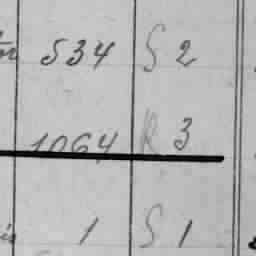 534 S 2
1064 R 3
1 S 1